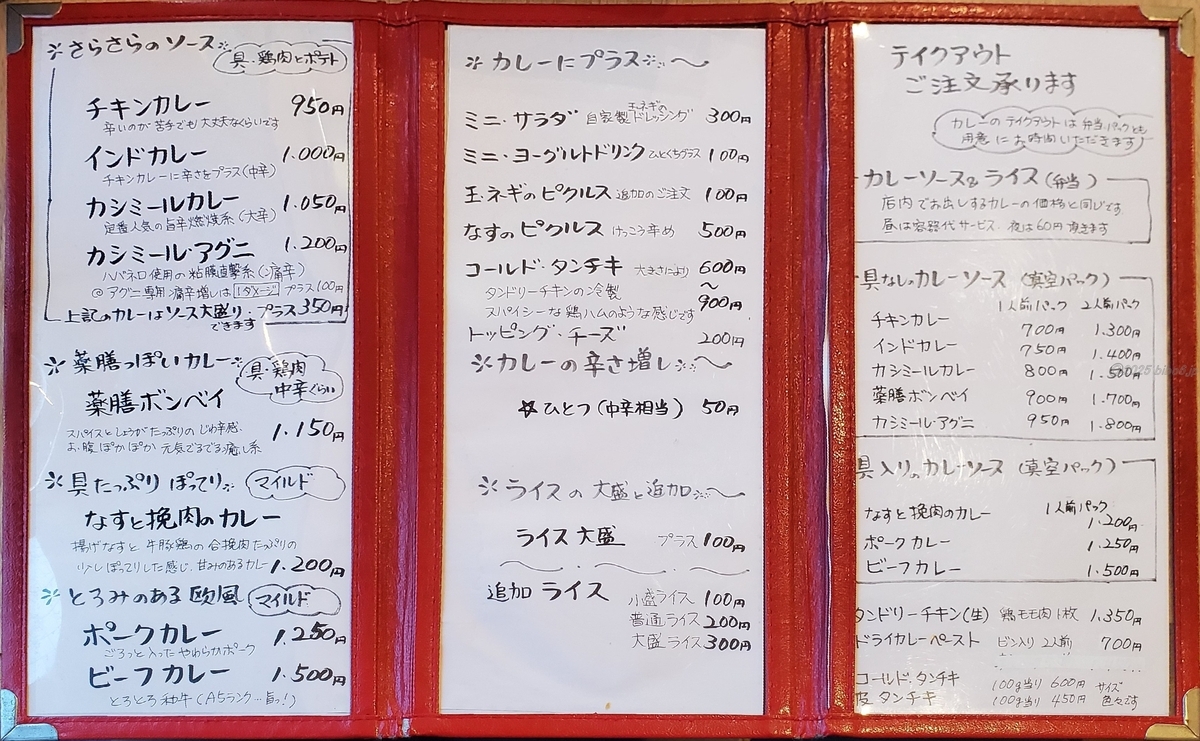 ※さらさらのソース※
具・鶏肉とポテト
チキンカレー 950円
辛いのが苦手でも大丈夫なくらいです
インドカレー 1.000円
チキンカレーに辛さをプラス(中辛)
カシミールカレー 1.050円
定番人気の旨辛燃焼系(大辛)
カシミール・アグニ 1.200円
ハバネロ使用の粘膜直撃系(痛辛)
◎アグニ専用痛辛増しは 1ダメージ プラス100円
上記のカレーはソース大盛り・プラス350円
できます
※薬膳っぽいカレー※
具・鶏肉
中辛くらい
薬膳ボンベイ
スパイスとしょうがたっぷりのじわ辛感.
お腹ぽかぽか 元気でるでる癒し系
1.150円
※具たっぷり ぽってり※
マイルド
なすと挽肉のカレー
揚げなすと 牛豚鶏の合挽肉たっぷりの
少しぽってりした感じ.甘みのあるカレー 1.200円
※とろみのある欧風
マイルド
ポークカレー 1.250円
ごろっと入ったやわらかポーク
ビーフカレー 1.500円
とろとろ和牛(A5ランク…旨っ!)
※カレーにプラス※〜
ミニ・サラダ 自家製玉ネギのドレッシング 300円
ミニ・ヨーグルトドリンク ひとくちプラス 100円
玉ネギのピクルス 追加のご注文 100円
なすのピクルス けっこう辛め 500円
コールド・タンチキ 大きさにより 600円
〜
タンドリーチキンの冷製
900円
スパイシーな鶏ハムのような感じです
トッピング・チーズ 200円
※カレーの辛さ増し※〜
☆ひとつ(中辛相当) 50円
※ライスの大盛と追加※〜
ライス大盛 プラス100円
追加ライス 小盛ライス 100円
普通ライス 200円
大盛ライス 300円
テイクアウト
ご注文承ります
カレーのテイクアウトは弁当、パックとも
用意にお時間いただきます
カレーソース&ライス(弁当)
店内でお出しするカレーの価格と同じです.
昼は容器代サービス. 夜は60円頂きます
具なしのカレーソース (真空パック)
1人前パック 2人前パック
チキンカレー 700円 1.300円
インドカレー 750円 1.400円
カシミールカレー 800円 1.500円
薬膳ボンベイ 900円 1.700円
カシミール・アグニ 950円 1.800円
具入りのカレーソース (真空パック)
1人前パック
なすと挽肉のカレー 1.200円
ポークカレー 1.250円
ビーフカレー 1.500円
タンドリーチキン(生) 鶏モモ肉1枚 1.350円
ドライカレーペースト ビン入り 2人前 700円
コールド・タンチキ 100g当り 600円 サイズ
皮タンチキ 100g当り 450円 色々です